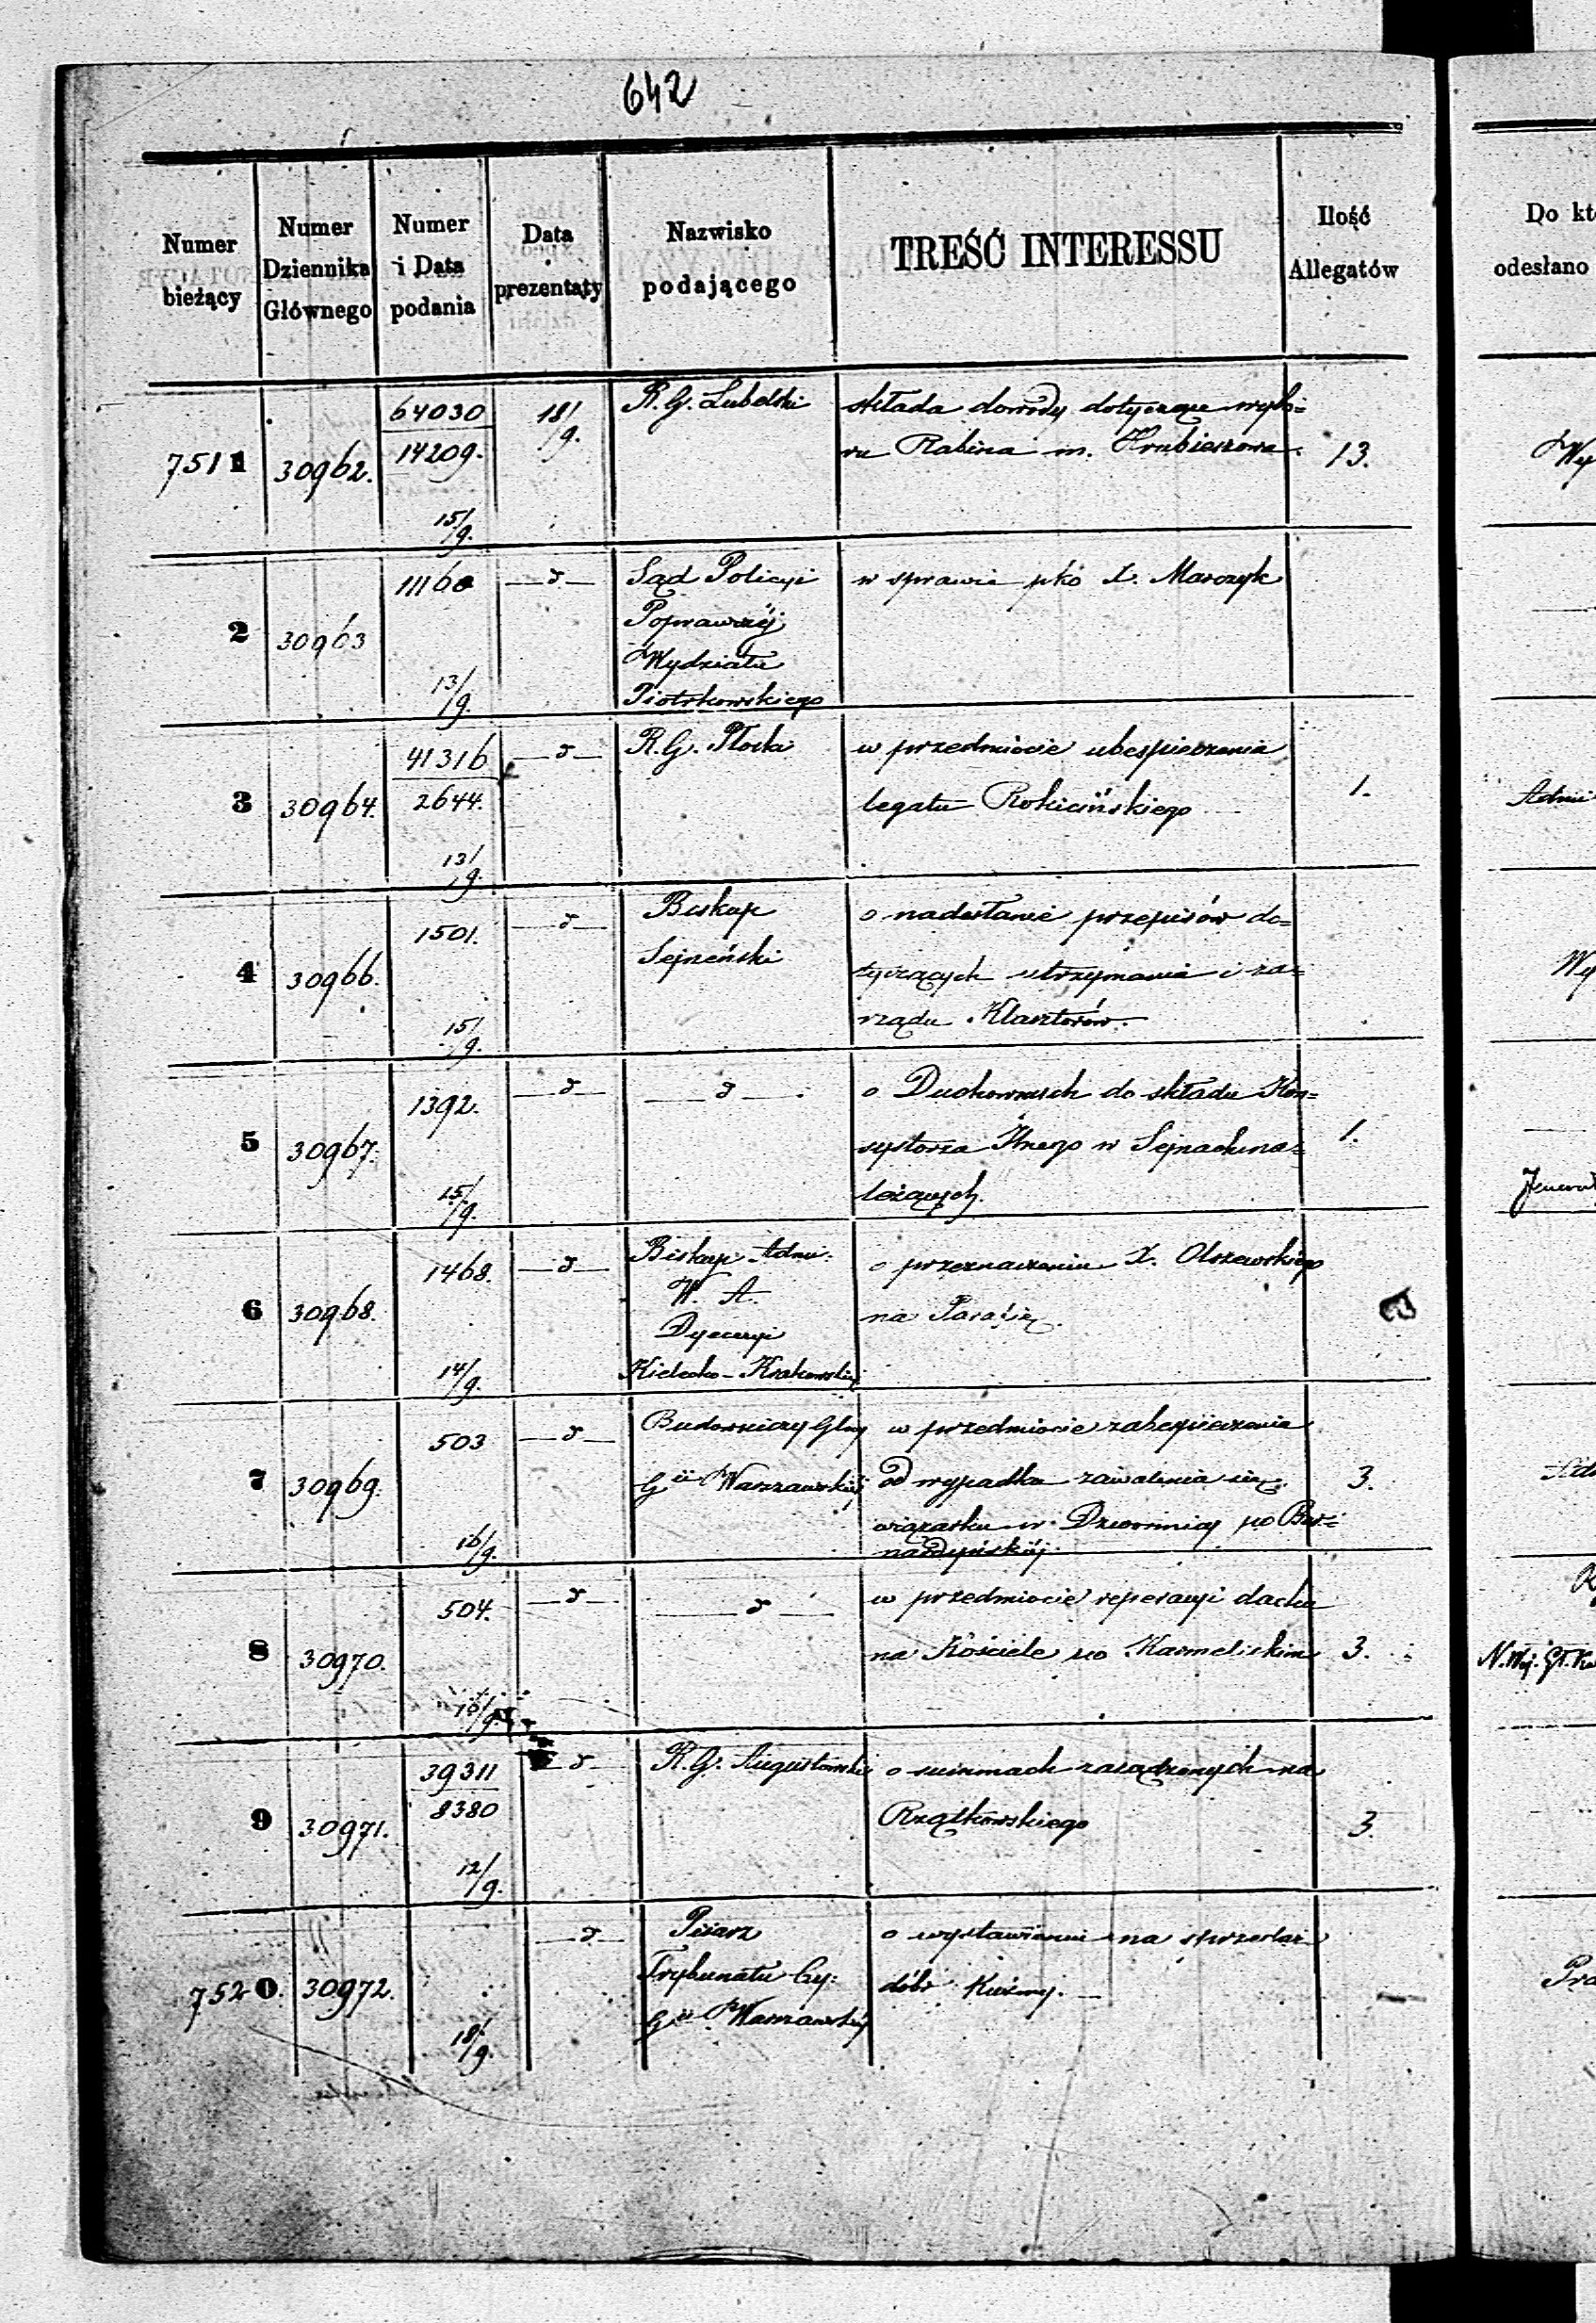 642
Numer bieżący
Numer Dziennika Głównego
Numer i Data podania
Data prezentaty
Nazwisko podającego
TREŚĆ INTERESSU
Ilość Allegatów
Do kt
odesłano
7511
30962.
64030
14209.
15/9.
18/9.
R. G. Lubelski
składa dowody dotyczące wybo=
ru Rabina m. Hrubieszowa.
13.
Wy
2
30963
11160
13/9.
—d—
Sąd Policyi
Poprawczéj
Wydziału
Piotrkowskiego
w sprawie pko X. Marczyk
3
30964.
41316
2644.
13/9.
—d—
R. G. Płocki
w przedmiocie ubespieczenia
legatu Rokicińskiego
1.
Admi
4
30966.
1501.
15/9.
—d—
Biskup
Sejneński
o nadesłanie przepisów do=
tyczących utrzymania i za=
rządu Klasztorów.
Wy
5
30967.
1392.
15/9.
—d—
—d—
o Duchownych do składu Kon=
systorza Jlnego w Sejnach na=
leżących.
1.
Jeneral
6
30968.
1468.
14/9.
—d—
Biskup Admi:
W. A.
Dyecezyi
Kielecko-Krakowskiej
o przeznaczeniu X. Olszewskiego
na Parafię.
7
30969.
503
16/9.
—d—
Budowniczy Głny
Gii Warszawskiéj
w przedmiocie zabespieczenia
od wypadku zawalenia się
wiązarku w Dzwonnicy po Ber=
nardyńskiéj.
3.
Adm
8
30970.
504.
16/9.
—d—
—d—
w przedmiocie reperacyi dachu
na Kościele po Karmelickim
3.
N. Wy. Gł. Ka
9
30971.
39311
8380
12/9.
—d—
R. G. Augustowski
o summach zasądzonych na
Rządkowskiego
3.
7520.
30972.
18/9.
—d—
Pisarz
Trybunału Cy:
Gii Warszawskiéj
o wystawieniu na sprzedaż
dóbr
Pro